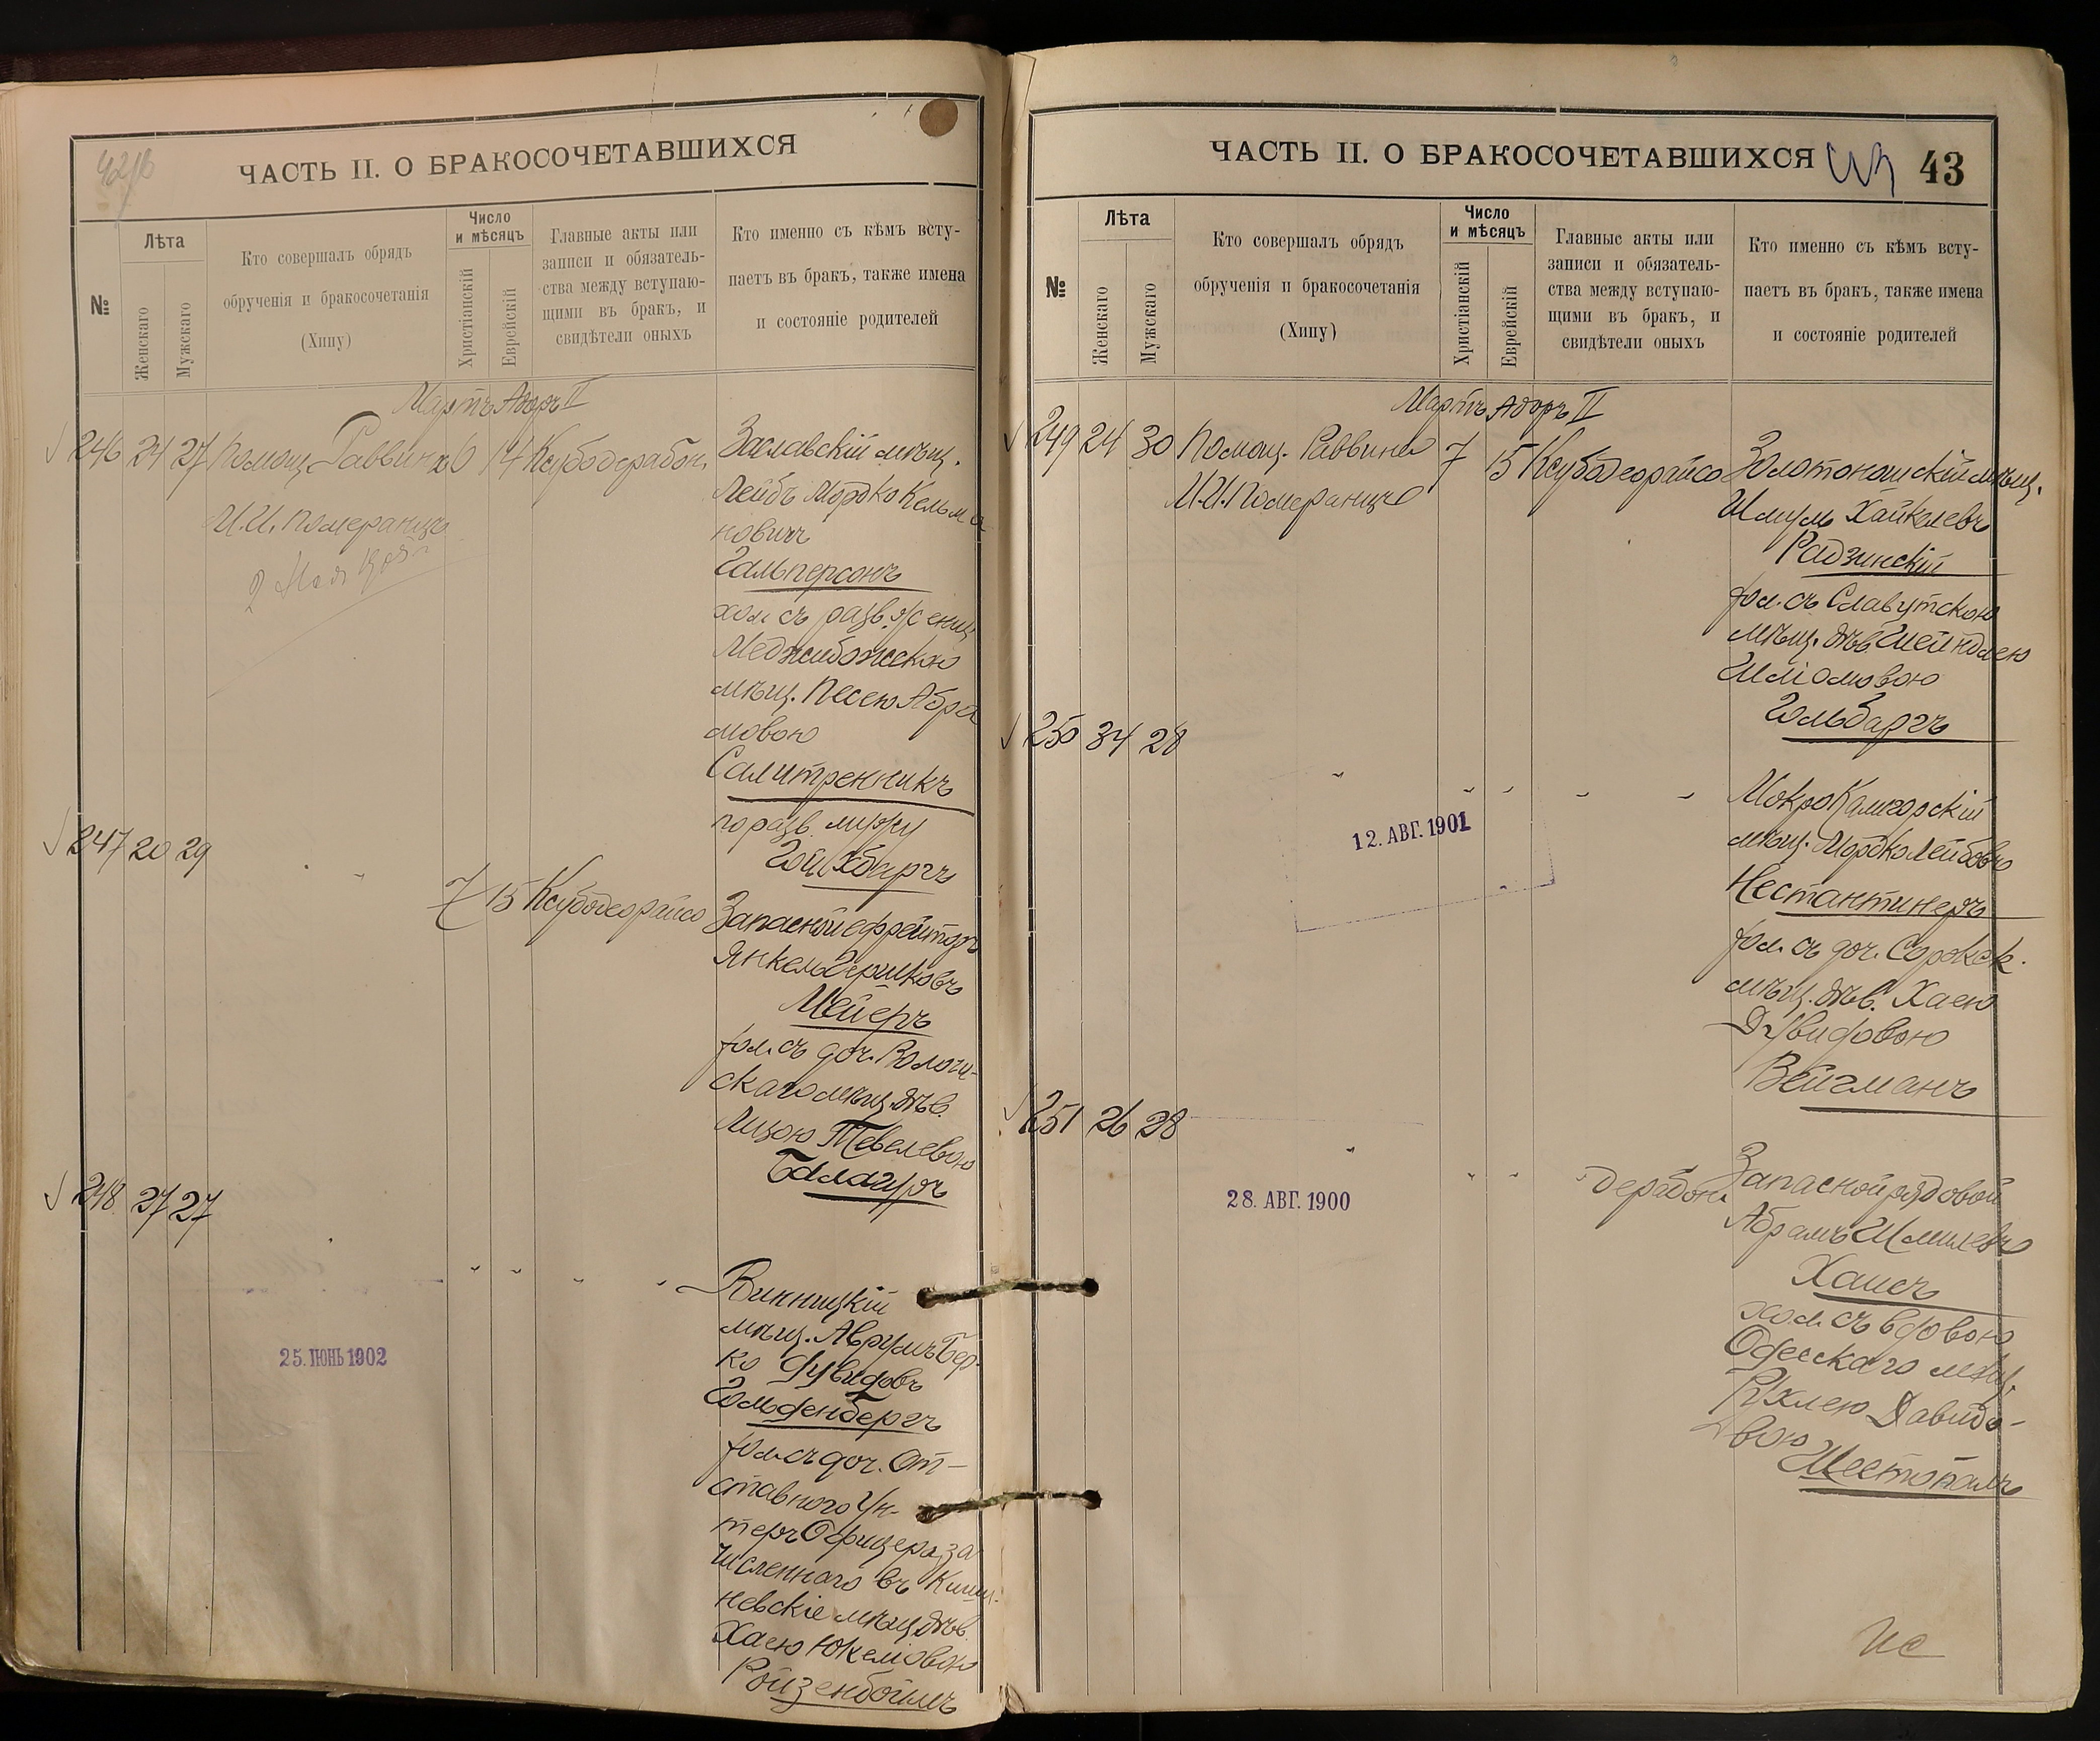 42/б
ЧАСТЬ II. О БРАКОСОЧЕТАВШИХСЯ
№
Лѣта
Женскаго
Мужскаго
Кто совершалъ обрядъ
обрученія и бракосочетанія
(Хипу)
Число
и мѣсяцъ
Христіанскій
Еврейскій
Главные акты или
записи и обязатель-
ства между вступаю-
щими въ бракъ, и
свидѣтели оныхъ
Кто именно съ кѣмъ всту-
паетъ въ бракъ, также имена
и состояніе родителей
Мартъ Адоръ II
246 24 27 Помощ. Раввина 6 14 Ксубодерабон.
И.И. Померанцъ
2 Мая
Заславскій мѣщ.
Лейбъ Мордко Кельма
новичъ
Гальперсонъ
хол. съ разв. жениц
Меджибожскою
мѣщ. Песею Абра
мовою
Салитренникъ
по разв. мужу
Гойхбаргъ
247 20 29
7 15 Ксубодеорайсо
Запасной ефрейторъ
Янкель Гершковъ
Мейеръ
хол. съ доч. Волочи-
скаго мѣщ. дѣв.
Лизою Тевелевою
Балагуръ
248 27 27
25. ІЮНЬ 1902
Винницкій
мѣщ. Аврумъ Бер-
ко Дувидовъ
Гольденбергъ
хол. съ доч. От-
ставного Ун-
теръ Офицера, за
численнаго въ Киши-
невскіе мѣщ. дѣв.
Хаею Юкелiовою
Ройзенбоймъ
ЧАСТЬ II. О БРАКОСОЧЕТАВШИХСЯ
43
№
Лѣта
Женскаго
Мужскаго
Кто совершалъ обрядъ
обрученія и бракосочетанія
(Хипу)
Число
и мѣсяцъ
Христіанскій
Еврейскій
Главные акты или
записи и обязатель-
ства между вступаю-
щими въ бракъ, и
свидѣтели оныхъ
Кто именно съ кѣмъ всту-
паетъ въ бракъ, также имена
и состояніе родителей
Мартъ Адоръ II
249 24 30 Помощ. Раввина 7 15 Ксубодеорайсо
И.И. Померанцъ
Золотоношскій мѣщ.
Шмуль Хайкелевъ
Радзинскій
хол. съ Славутскою
мѣщ. дѣв. Шейндлею
Шліомовою
Гольбаргъ
250 34 28
12. АВГ. 1901
МокроКалигорскій
мѣщ. Мордко Лейбовъ
Нестантинеръ
хол. съ доч. Сорокск.
мѣщ. дѣв. Хаею
Дувидовою
Вейгманъ
251 26 28
28. АВГ. 1900
дерабон.
Запасной рядовой
Абрамъ Шмилевъ
Хаисъ
хол. съ вдовою
Одесскаго мѣщ.
Рухлею Давидо-
вою
Шестопалъ